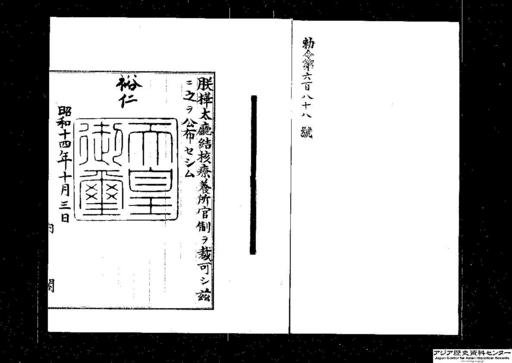 勅令第六百八十八號
朕樺太廳結核療養所官制ヲ裁可シ茲
ニ之ヲ公布セシム
裕仁
天皇
御璽
昭和十四年十月三日
内閣
アジア歴史資料センター
Japan Center for Asian Historical Records